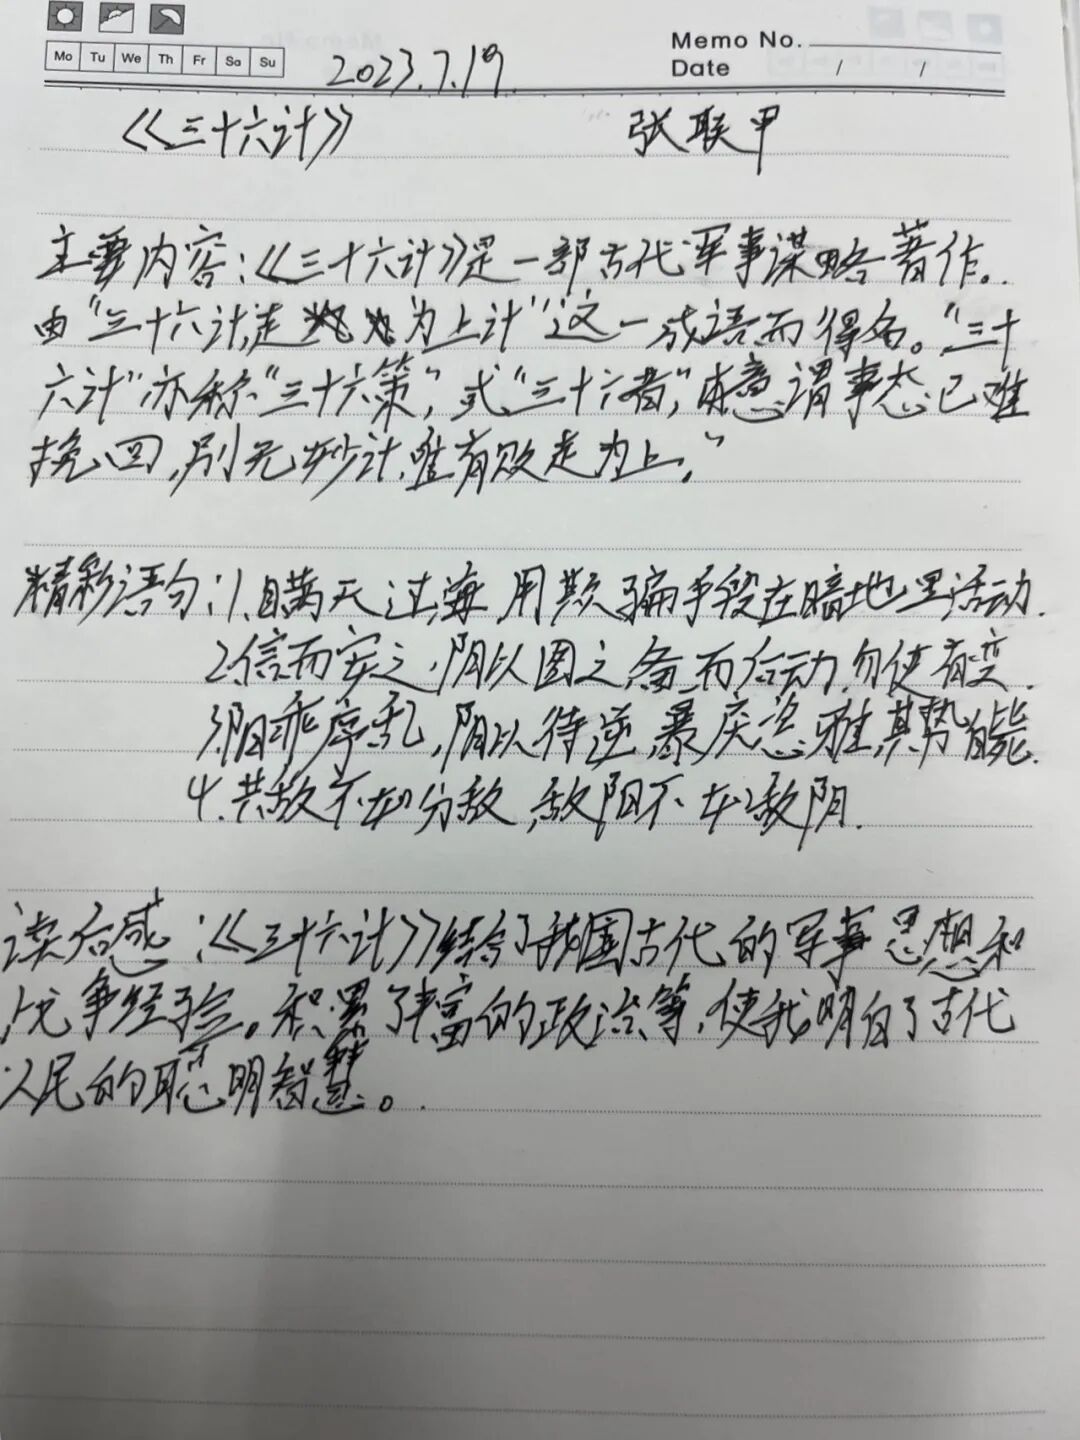 Mo Tu We Th Fr Sa Su
Memo No.
2023.7.19
Date / /
《三十六计》 张联甲
主要内容:《三十六计》是一部古代军事谋略著作。
由“三十六计,走为上计”这一成语而得名。“三十
六计”亦称“三十六策”,式“三十六着”,意谓事态已难
挽回,别无妙计,唯有败走为上,”
精彩语句:1.瞒天过海,用欺骗手段在暗地里活动.
2.信而安之,阴以图之,备而后动,勿使有变.
3.阳乖序乱,阴以待逆,暴戾恣雎,其势自毙.
4.共敌不如分敌,敌阳不如敌阴.
读后感:《三十六计》结合了我国古代的军事思想和
战争经验。积累了丰富的政治等,使我明白了古代
人民的聪明智慧。